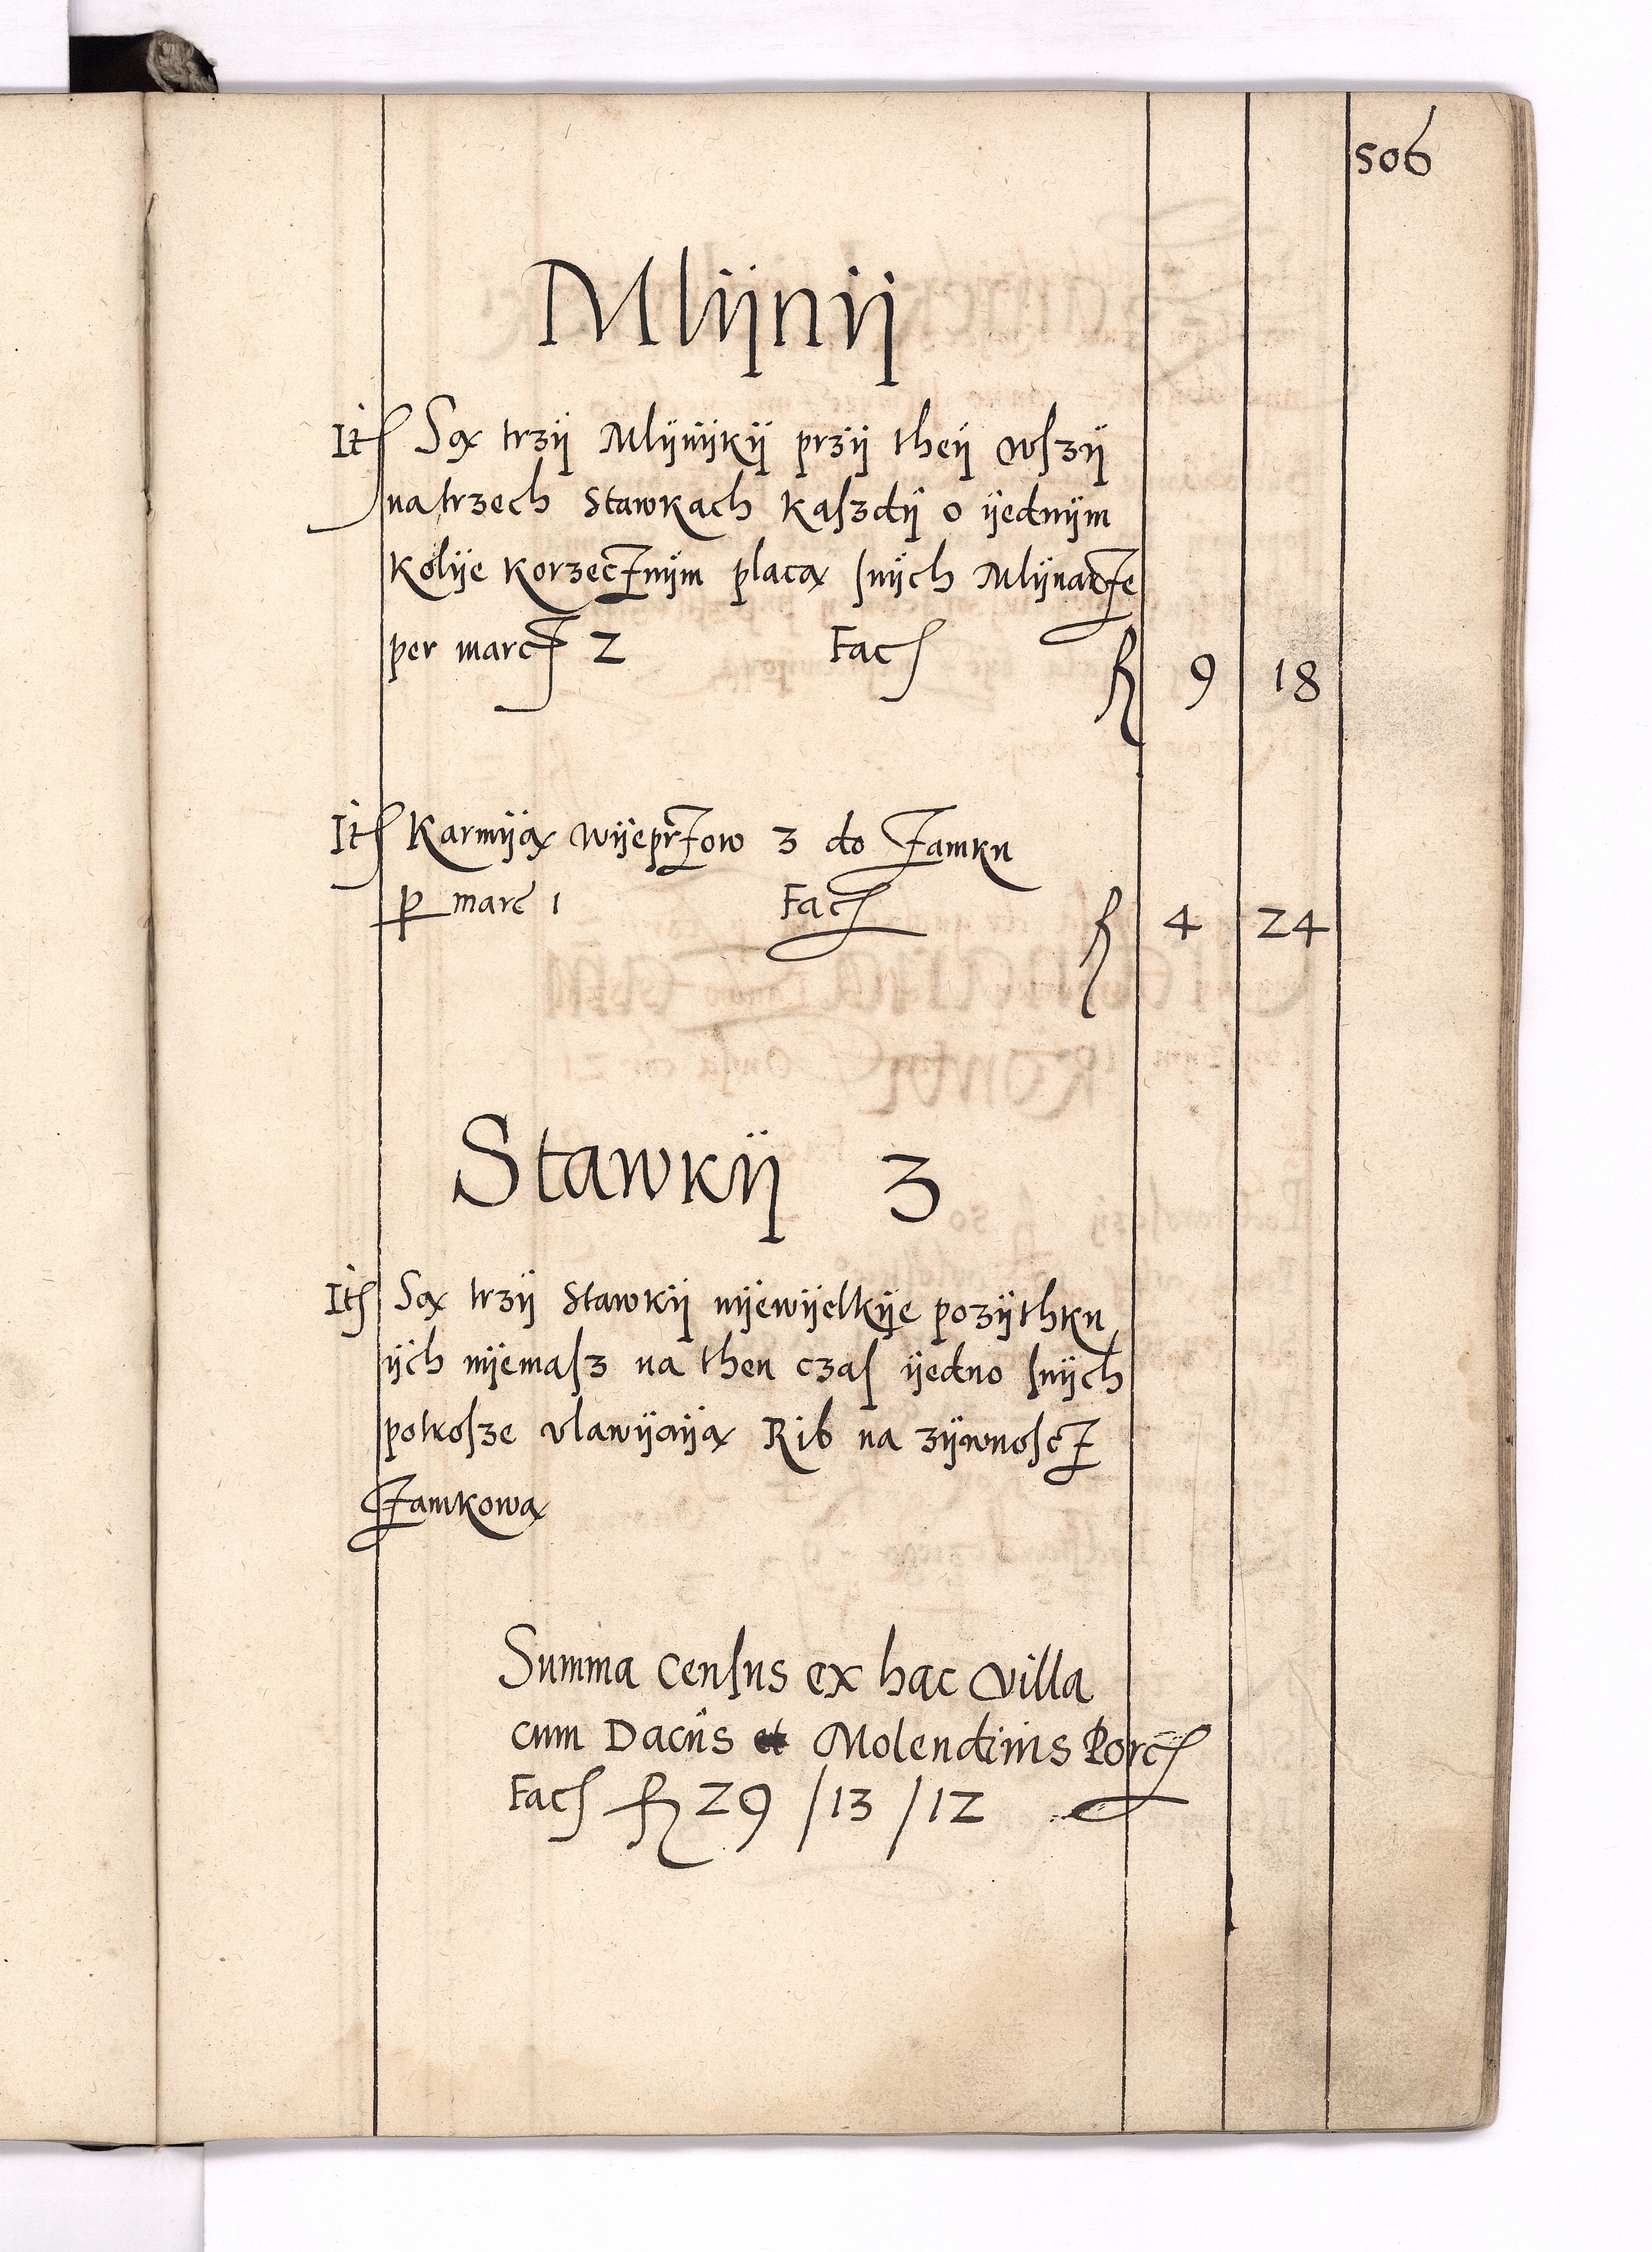 506
Mlÿnÿ
It Są trzÿ Mlÿnÿkÿ przÿ theÿ wſzÿ
na trzech Stawkach kaſzdÿ o ÿednÿm
kolÿe korzecznÿm placą ſnÿch Mlÿnarze
per marc 2 Fac fl 9 18
It Karmÿą wÿeprzow 3 do Zamku
p marc 1 Fac fl 4 24
Stawkÿ 3
It Są trzÿ Stawkÿ nÿewÿelkÿe pozÿthku
ÿch nÿemaſz na then czaſ ÿedno ſnÿch
potroſze vlawÿaÿą Rib na zÿwnoſcz
Zamkową
Summa Cenſus ex hac villa
cum Daciis et Molendinis Porc
Fac fl 29 / 13 / 12